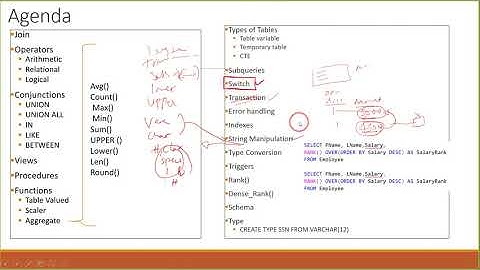 Agenda
Join
Operators
Arithmetic
Relational
Logical
Conjunctions
UNION
UNION ALL
IN
LIKE
BETWEEN
Views
Procedures
Functions
Table Valued
Scaler
Aggregate
Avg()
Count()
Max()
Min()
Sum()
UPPER ()
Lower()
Len()
Round()
lower
upper
char
Types of Tables
Table variable
Temporary table
CTE
Subqueries
Switch
Transaction
Error handling
Indexes
String Manipulation
Type Conversion
Triggers
Rank()
Dense_Rank()
Schema
Type
CREATE TYPE SSN FROM VARCHAR(12)
SELECT FName, LName,Salary,
RANK() OVER(ORDER BY Salary DESC) AS SalaryRank
FROM Employee
SELECT FName, LName,Salary,
RANK() OVER(ORDER BY Salary DESC) AS SalaryRank
FROM Employee